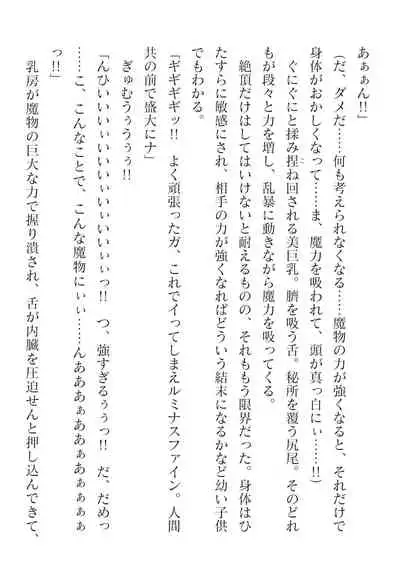 あぁぁん!!
(だ、ダメだ……何も考えられなくなる……魔物の力が強くなると、それだけで
身体がおかしくなって……ま、魔力を吸われて、頭が真っ白にぃ……!!)
ぐにぐにと揉み捏ね回される美巨乳。臍を吸う舌。秘所を覆う尻尾。そのどれ
もが段々と力を増し、乱暴に動きながら魔力を吸ってくる。
絶頂だけはしてはいけないと耐えるものの、それももう限界だった。身体はひ
たすらに敏感にされ、相手の力が強くなればどういう結末になるかなど幼い子供
でもわかる。
「ギギギギッ!! よく頑張ったガ、これでイってしまえルミナスファイン。人間
共の前で盛大にナ」
ぎゅむうぅうぅぅ!!
「んひいいぃいいぃいぃいぃいぃぃっ!! つ、強すぎるぅぅっ!! だ、だめっ
……こ、こんなことで、こんな魔物にぃぃ……んあああぁああぁあぁぁぁ
っ!!」
乳房が魔物の巨大な力で握り潰され、舌が内臓を圧迫せんと押し込んできて、